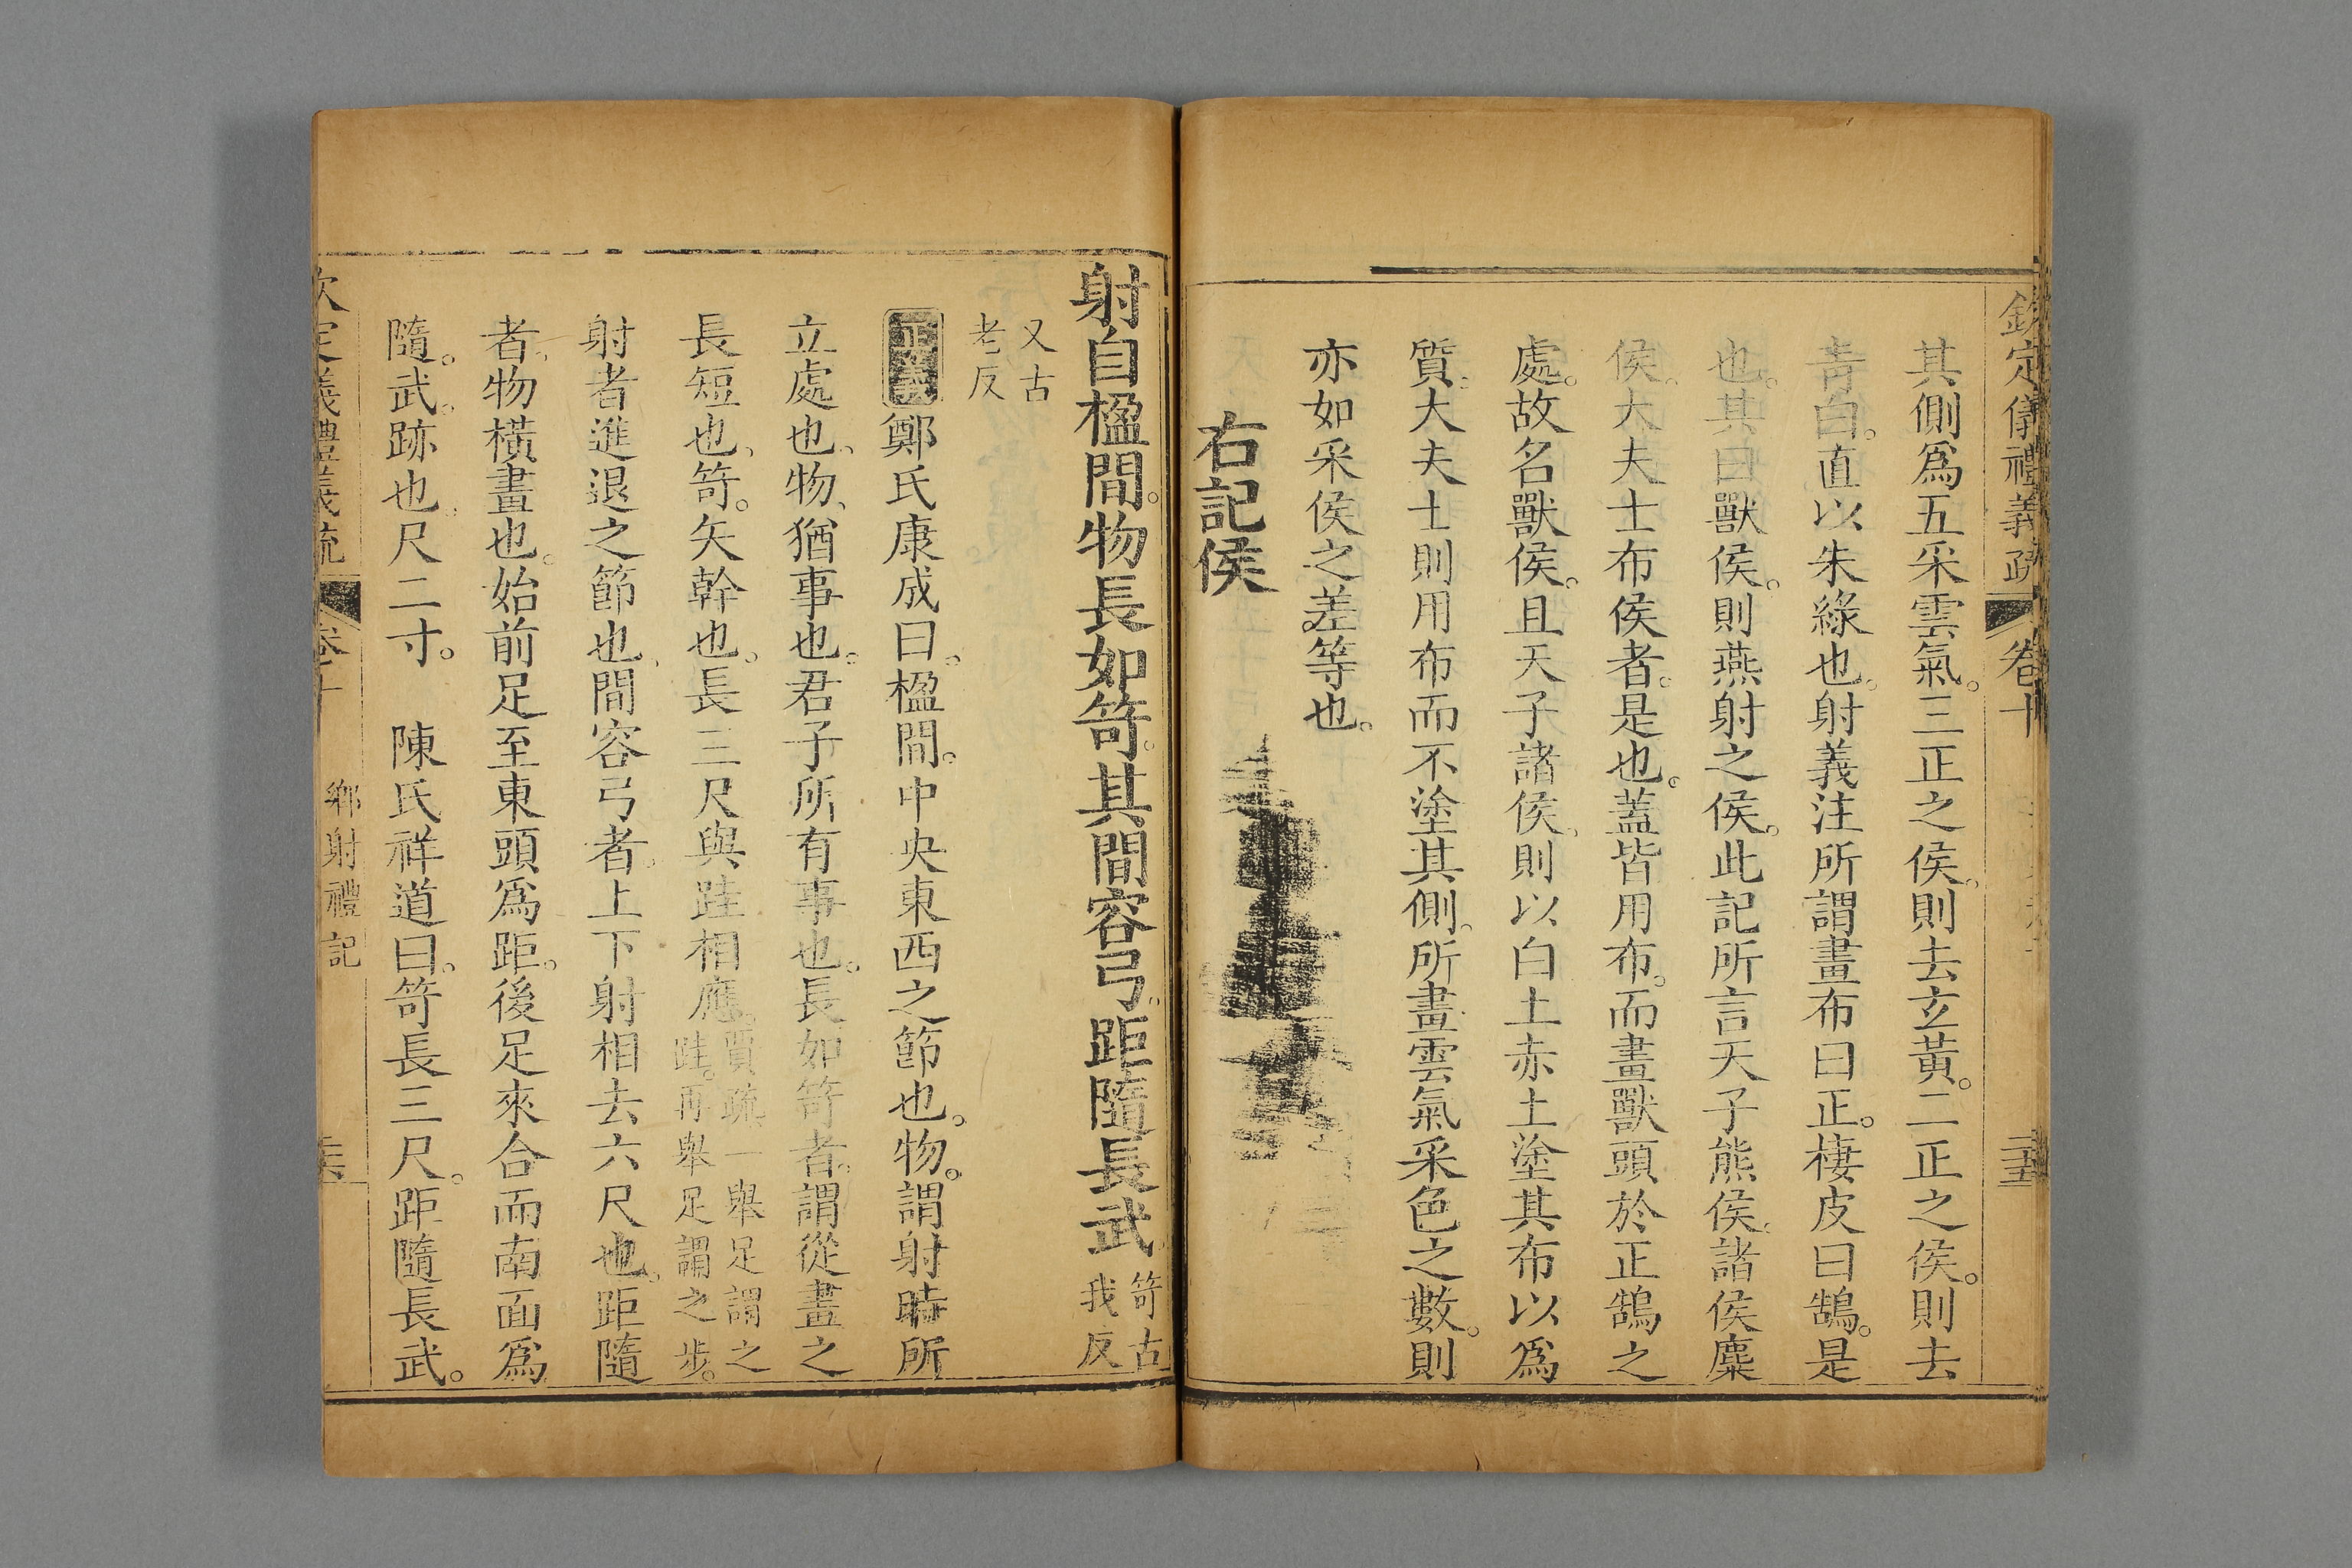 欽定儀禮義疏 卷十
其側爲五采雲氣。三正之侯。則去玄黃。二正之侯。則去
青白。直以朱綠也。射義注所謂畫布曰正。棲皮曰鵠。是
也。其曰獸侯。則燕射之侯。此記所言天子熊侯。諸侯麋
侯。大夫士布侯者。是也。蓋皆用布。而畫獸頭於正鵠之
處。故名獸侯。且天子諸侯。則以白土赤土塗其布以爲
質。大夫士則用布而不塗其側。所畫雲氣采色之數。則
亦如采侯之差等也。
右記侯
射自楹間。物長如笴。其間容弓。距隨長武 笴古
我反
又古
老反
正義 鄭氏康成曰。楹間。中央東西之節也。物。謂射時所
立處也、物、猶事也。君子所有事也。長如笴者。謂從畫之
長短也、笴。矢幹也。長三尺與跬相應。賈疏一舉足謂之
跬。再舉足謂之步。
射者進退之節也、間容弓者。上下射相去六尺也。距隨
者。物橫畫也。始前足至東頭爲距。後足來合而南面爲
隨。武。跡也。尺二寸。 陳氏祥道曰。笴長三尺。距隨長武。
欽定儀禮義疏 卷十 鄉射禮記